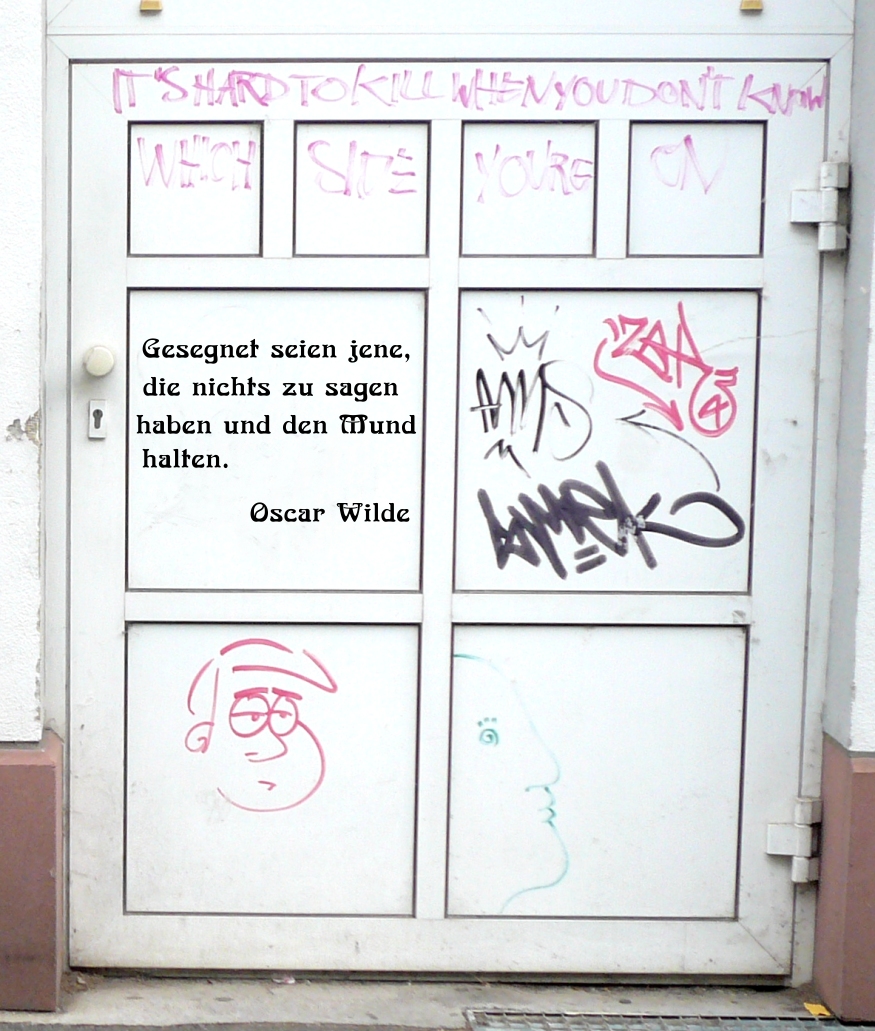 IT'S HARD TO KILL WHEN YOU DON'T KNOW
WHICH SIDE YOU'RE ON
Gesegnet seien jene,
die nichts zu sagen
haben und den Mund
halten.
Oscar Wilde